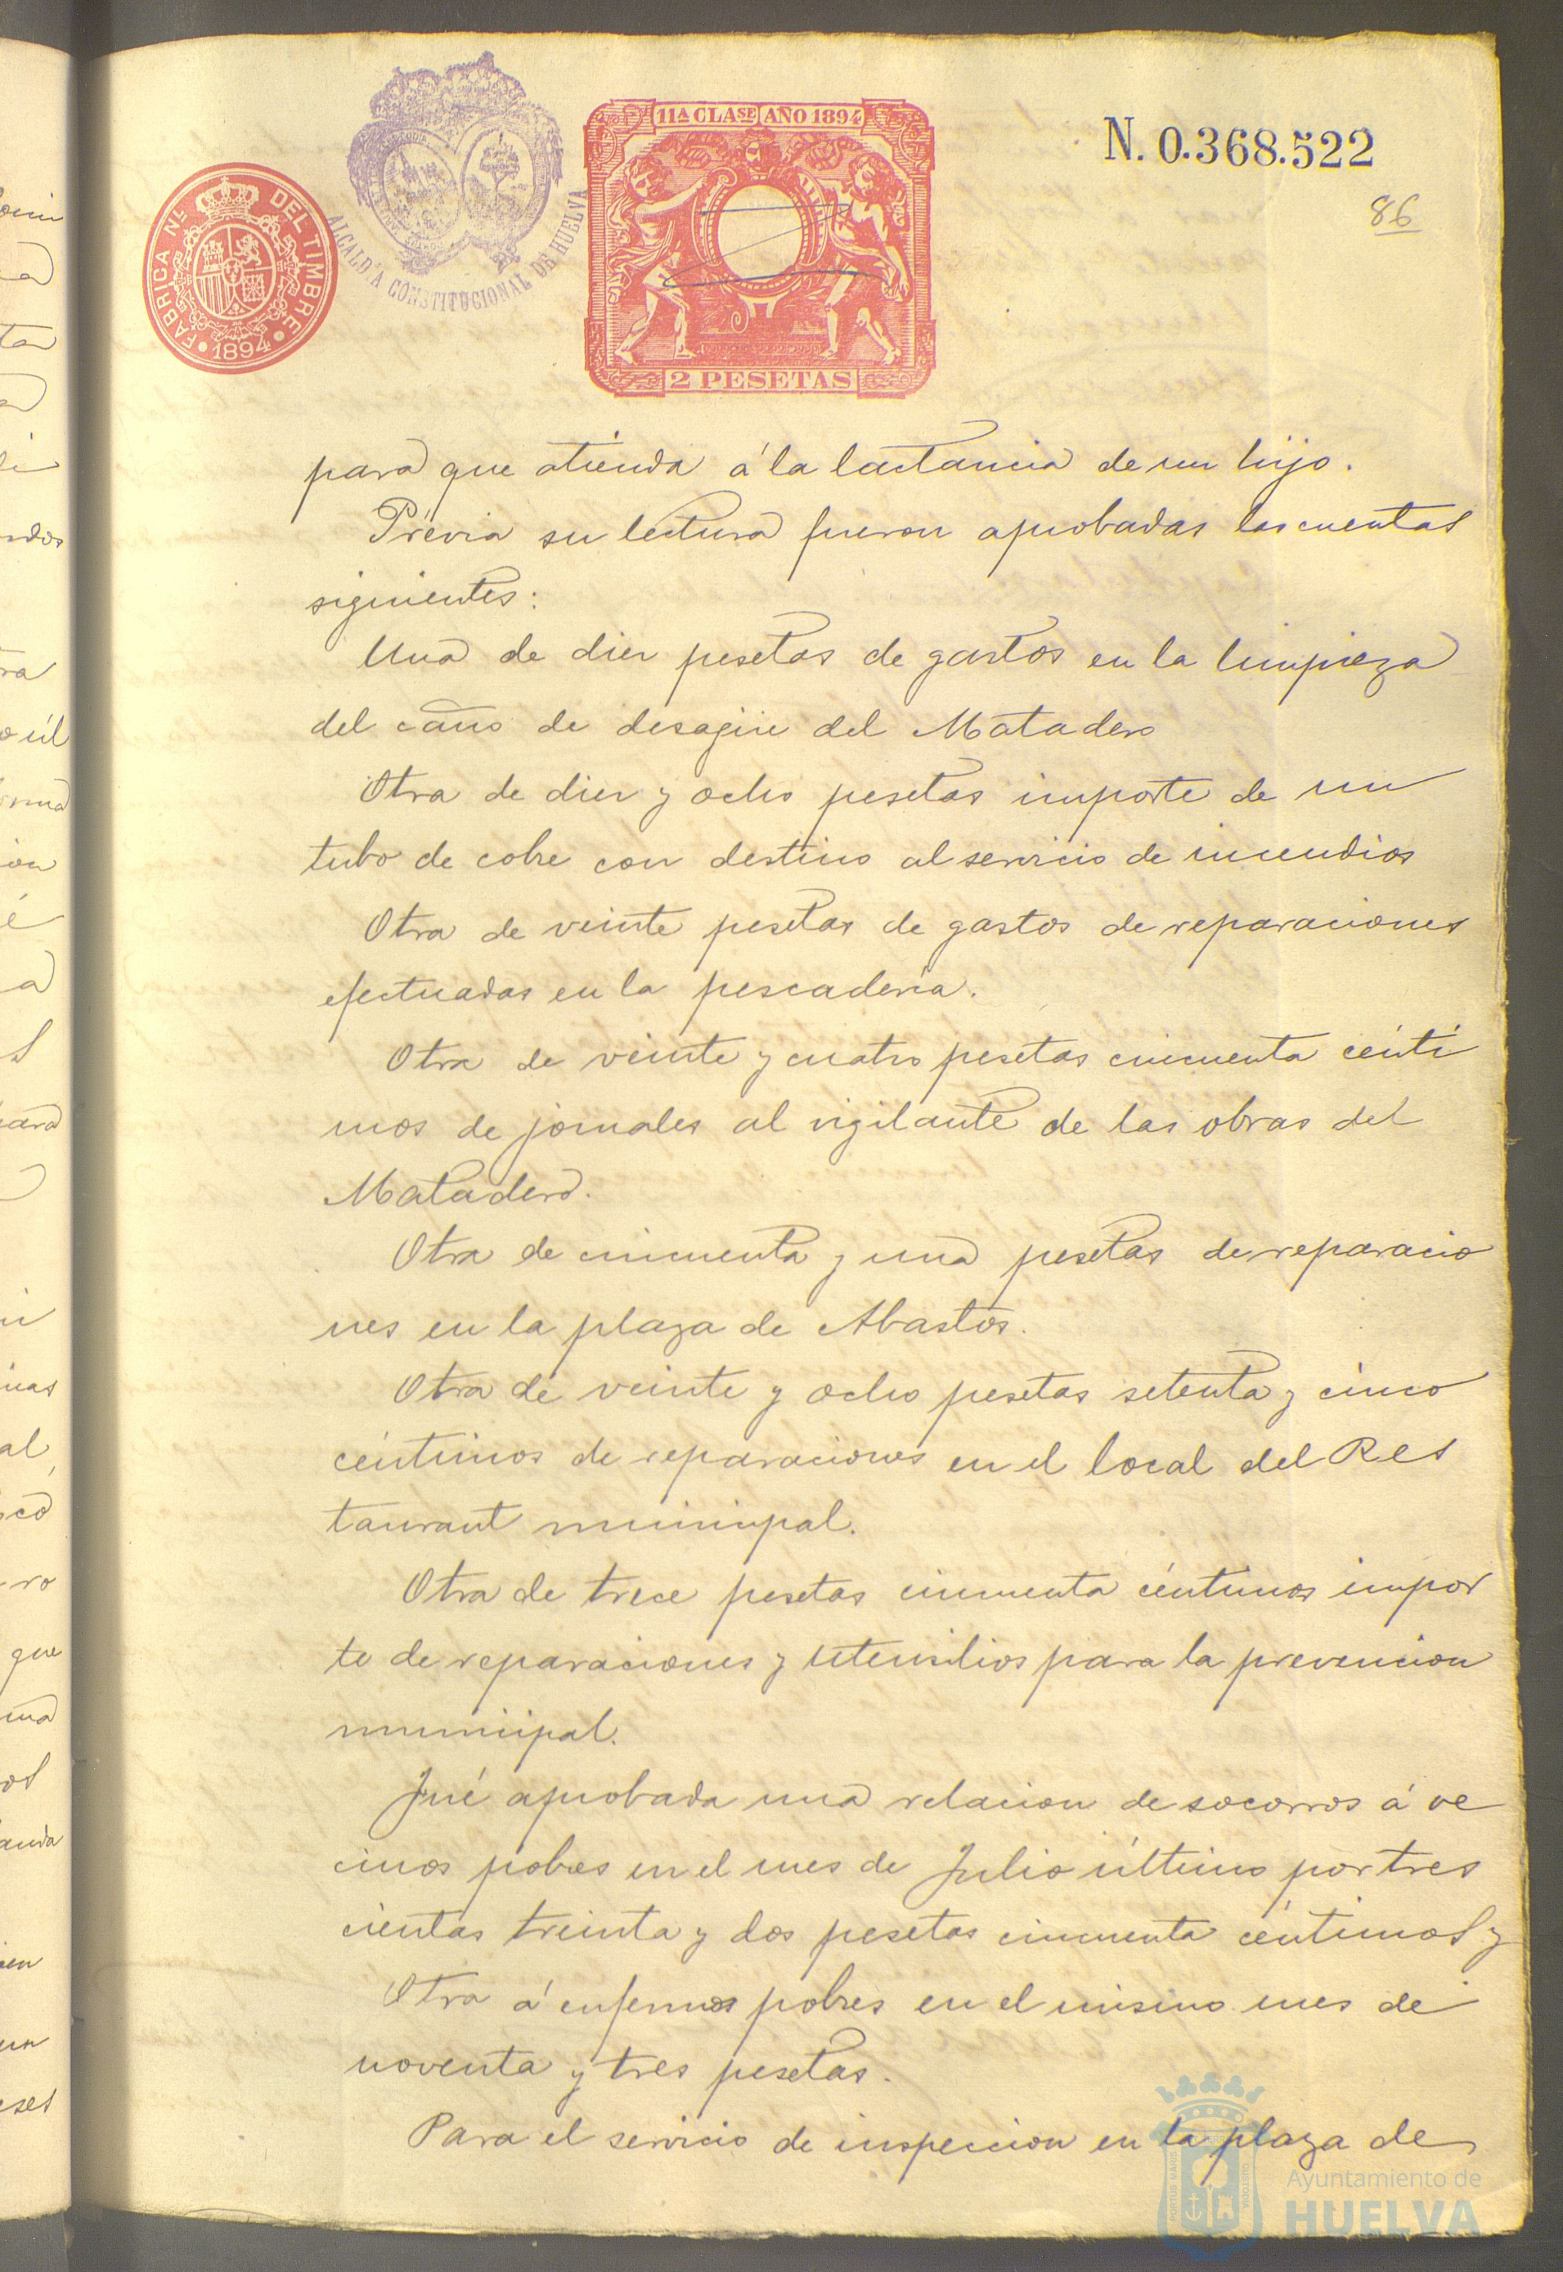 11ª CLASE AÑO 1894
N. 0.368.522
86
FABRICA NL. DEL TIMBRE
1894
ALCALDIA CONSTITUCIONAL DE HUELVA
2 PESETAS
para que atienda á la lactancia de un hijo.
Prévia su lectura fueron aprobadas las cuentas
siguientes:
Una de diez pesetas de gastos en la limpieza
del caño de desagüe del Matadero
Otra de diez y ocho pesetas importe de un
tubo de cobre con destino al servicio de incendios
Otra de veinte pesetas de gastos de reparaciones
efectuadas en la pescadería.
Otra de veinte y cuatro pesetas cincuenta cénti
mos de jornales al vigilante de las obras del
Matadero.
Otra de cincuenta y una pesetas de reparacio
nes en la plaza de Abastos.
Otra de veinte y ocho pesetas setenta y cinco
céntimos de reparaciones en el local del Res
taurant municipal.
Otra de trece pesetas cincuenta céntimos impor
te de reparaciones y utensilios para la prevencion
municipal.
Fué aprobada una relacion de socorros á ve
cinos pobres en el mes de Julio último por tres
cientas treinta y dos pesetas cincuenta céntimos y
Otra á enfermos pobres en el mismo mes de
noventa y tres pesetas.
Para el servicio de inspeccion en la plaza de
Ayuntamiento de
HUELVA